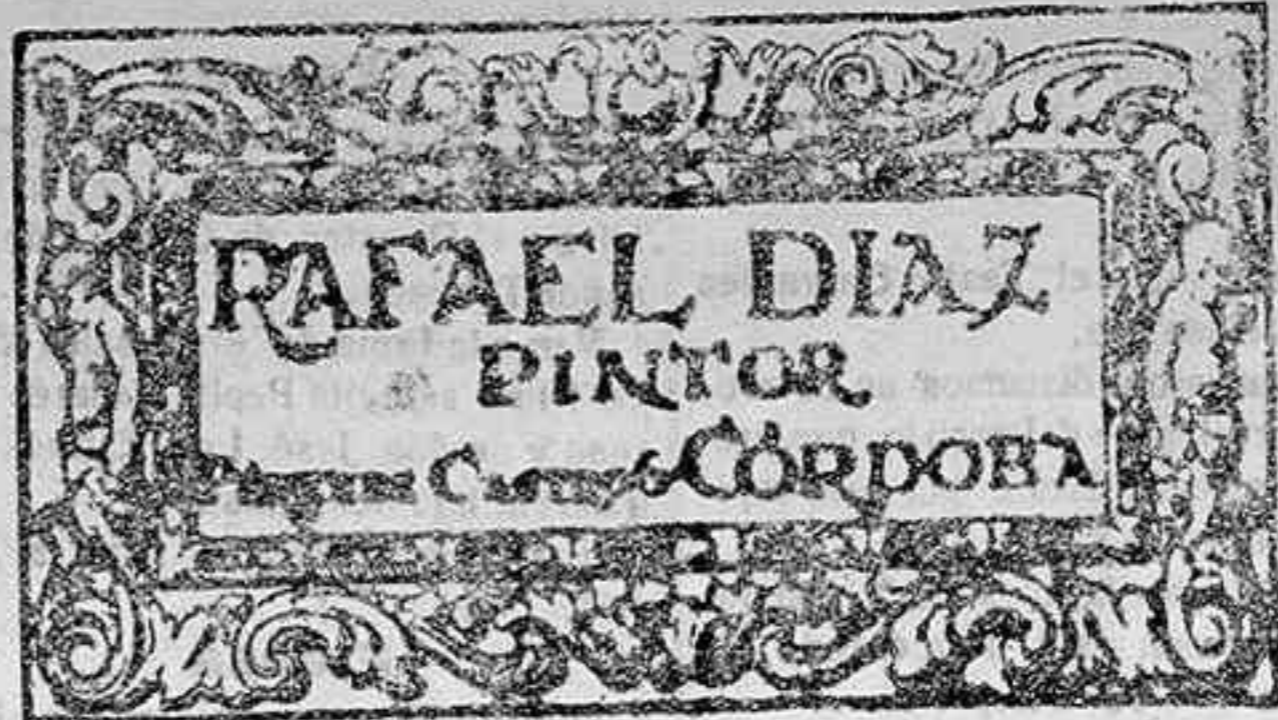 RAFAEL DIAZ
PINTOR
CÓRDOBA